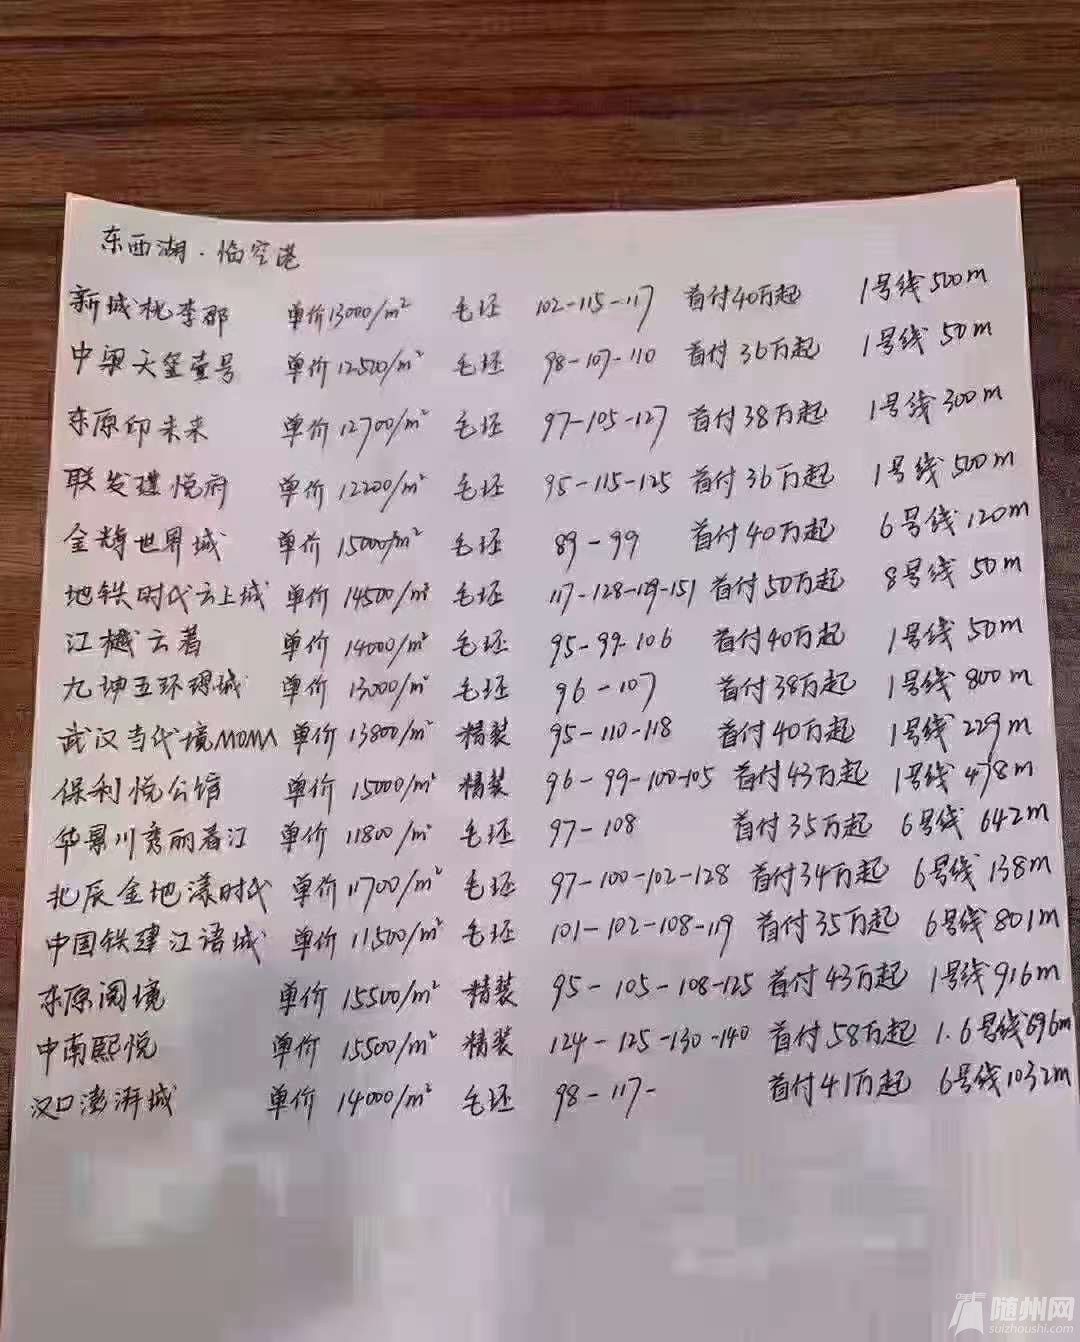 东西湖·临空港
新城桃李郡 单价13000/m² 毛坯 102-115-117 首付40万起 1号线500m
中梁天玺壹号 单价12500/m² 毛坯 98-107-110 首付36万起 1号线50m
东原印未来 单价12700/m² 毛坯 97-105-127 首付38万起 1号线300m
联发璞悦府 单价12200/m² 毛坯 95-115-125 首付36万起 1号线500m
金辉世界城 单价15000/m² 毛坯 89-99 首付40万起 6号线120m
地铁时代云上城 单价14500/m² 毛坯 117-128-129-151 首付50万起 8号线50m
江樾云著 单价14000/m² 毛坯 95-99-106 首付40万起 1号线50m
九坤五环璟城 单价13000/m² 毛坯 96-107 首付38万起 1号线800m
武汉当代境MOMA 单价13800/m² 精装 95-110-118 首付40万起 1号线229m
保利悦公馆 单价15000/m² 精装 96-99-100-105 首付43万起 1号线478m
华景川秀丽春江 单价11800/m² 毛坯 97-108 首付35万起 6号线642m
北辰金地漾时代 单价11700/m² 毛坯 97-100-102-128 首付34万起 6号线138m
中国铁建江语城 单价11500/m² 毛坯 101-102-108-119 首付35万起 6号线801m
东原阅境 单价15500/m² 精装 95-105-108-125 首付43万起 1号线916m
中南熙悦 单价15500/m² 精装 124-125-130-140 首付58万起 1.6号线696m
汉口澎湃城 单价14000/m² 毛坯 98-117- 首付41万起 6号线1032m
随州网
suizhoushi.com